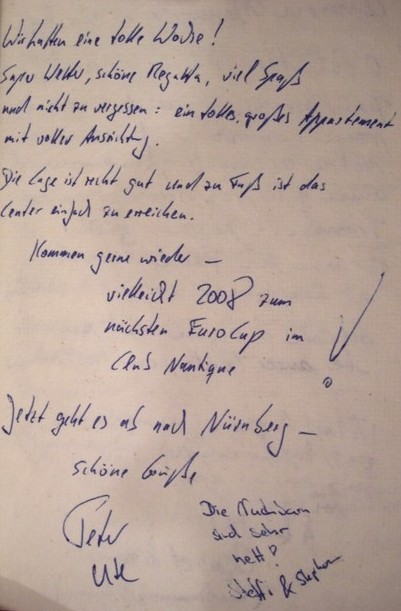 Wir hatten eine tolle Woche!
Super Wetter, schöne Regatta, viel Spaß
und nicht zu vergessen: ein tolles, großes Appartement
mit voller Ausrichtung.
Die Lage ist recht gut und zu Fuß ist das
Center einfach zu erreichen.
Kommen gerne wieder –
vielleicht 2008 zum
nächsten EuroCup im
Club Nautique !
Jetzt geht es ab nach Nürnberg –
schöne Grüße
Peter
Ute
Die Nachbarn
sind sehr
nett!
Steffi & Stephan